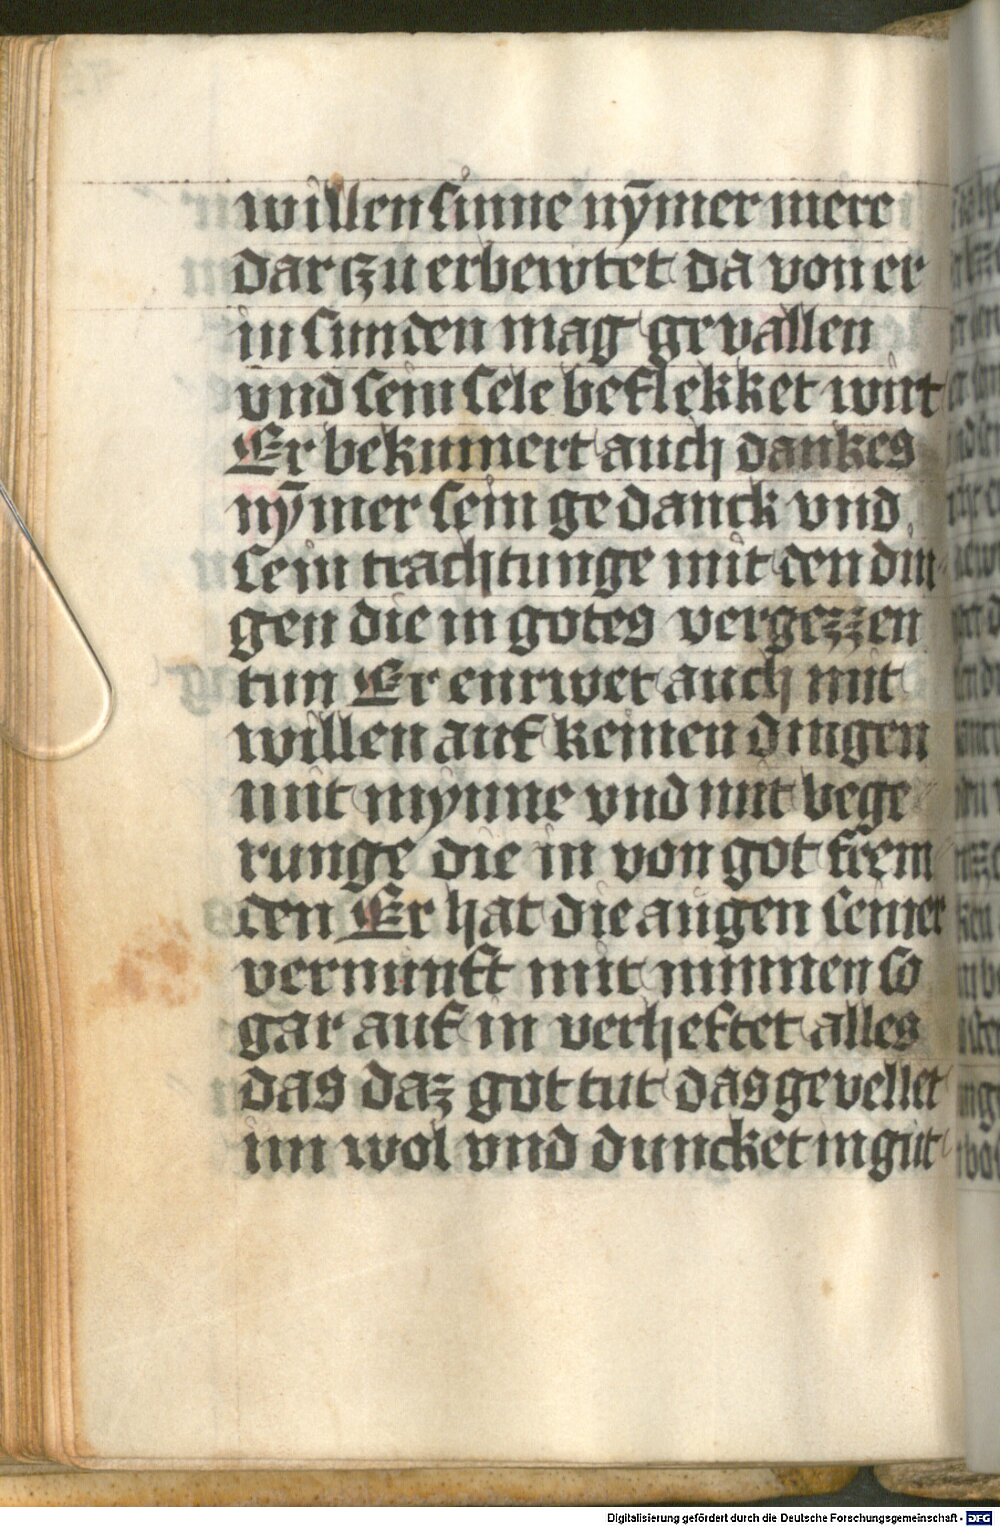 willen sinne nȳmer mere
dar czu erbewtet da von er
in sunden mag gevallen
vnd sein sele beflekket wirt
Er bekumert auch dankes
nȳmer sein gedanck vnd
sein trachtunge mit den din-
gen die in gotes vergezzen
tun Er enrwet auch mit
willen auf keinen dingen
mit mynne vnd mit bege
runge die in von got frem
den Er hat die augen seiner
vernunft mit minnen so
gar auf in verheftet alles
das daz got tut das gevellet
im wol vnd duncket in gut
Digitalisierung gefördert durch die Deutsche Forschungsgemeinschaft - DFG